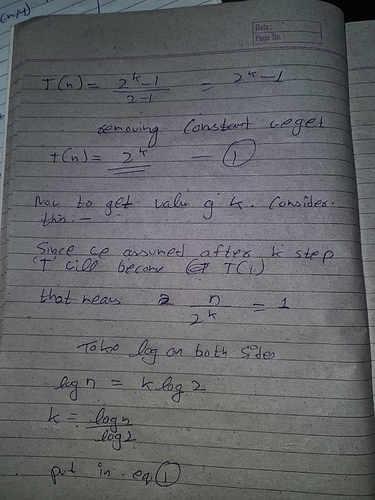 (n,m)
Date :
Page No :
T(n) = 2^k - 1 / 2 - 1 = 2^k - 1
removing Constant we get
T(n) = 2^k — ①
Now to get value of k. Consider
this :-
Since we assumed after k step
'T' will become T(1)
that means n / 2^k = 1
Take log on both sides
log n = k log 2
k = log n / log 2
put in eq ①